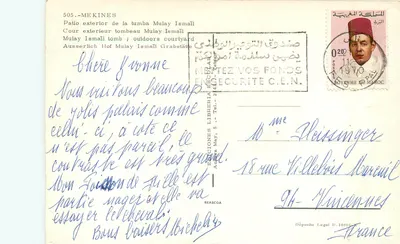 505.-MEKINES
Patio exterior de la tumba Mulay Ismail
Cour exterieur tombeau Mulay Ismail
Mulay Ismail tomb / outdoors courtyard
Ausserlich Hof Mulay Ismail
صندوق التوفير الوطني
يضمن سلامة أموالكم
VOS FONDS
SECURITE C.E.N.
المغرب
MAROC
0,20
1970
Chère Yvonne
Nous visitons beaucoup
de jolis palais comme
celui-ci, à côté ce
n'est pas pareil, le
contraste est très grand.
Mon
partie nager et elle va
essayer le cheval.
Bons baisers Micheline
Mme Pleissinger
18 rue Villebois Mareuil
94-Vincennes
France